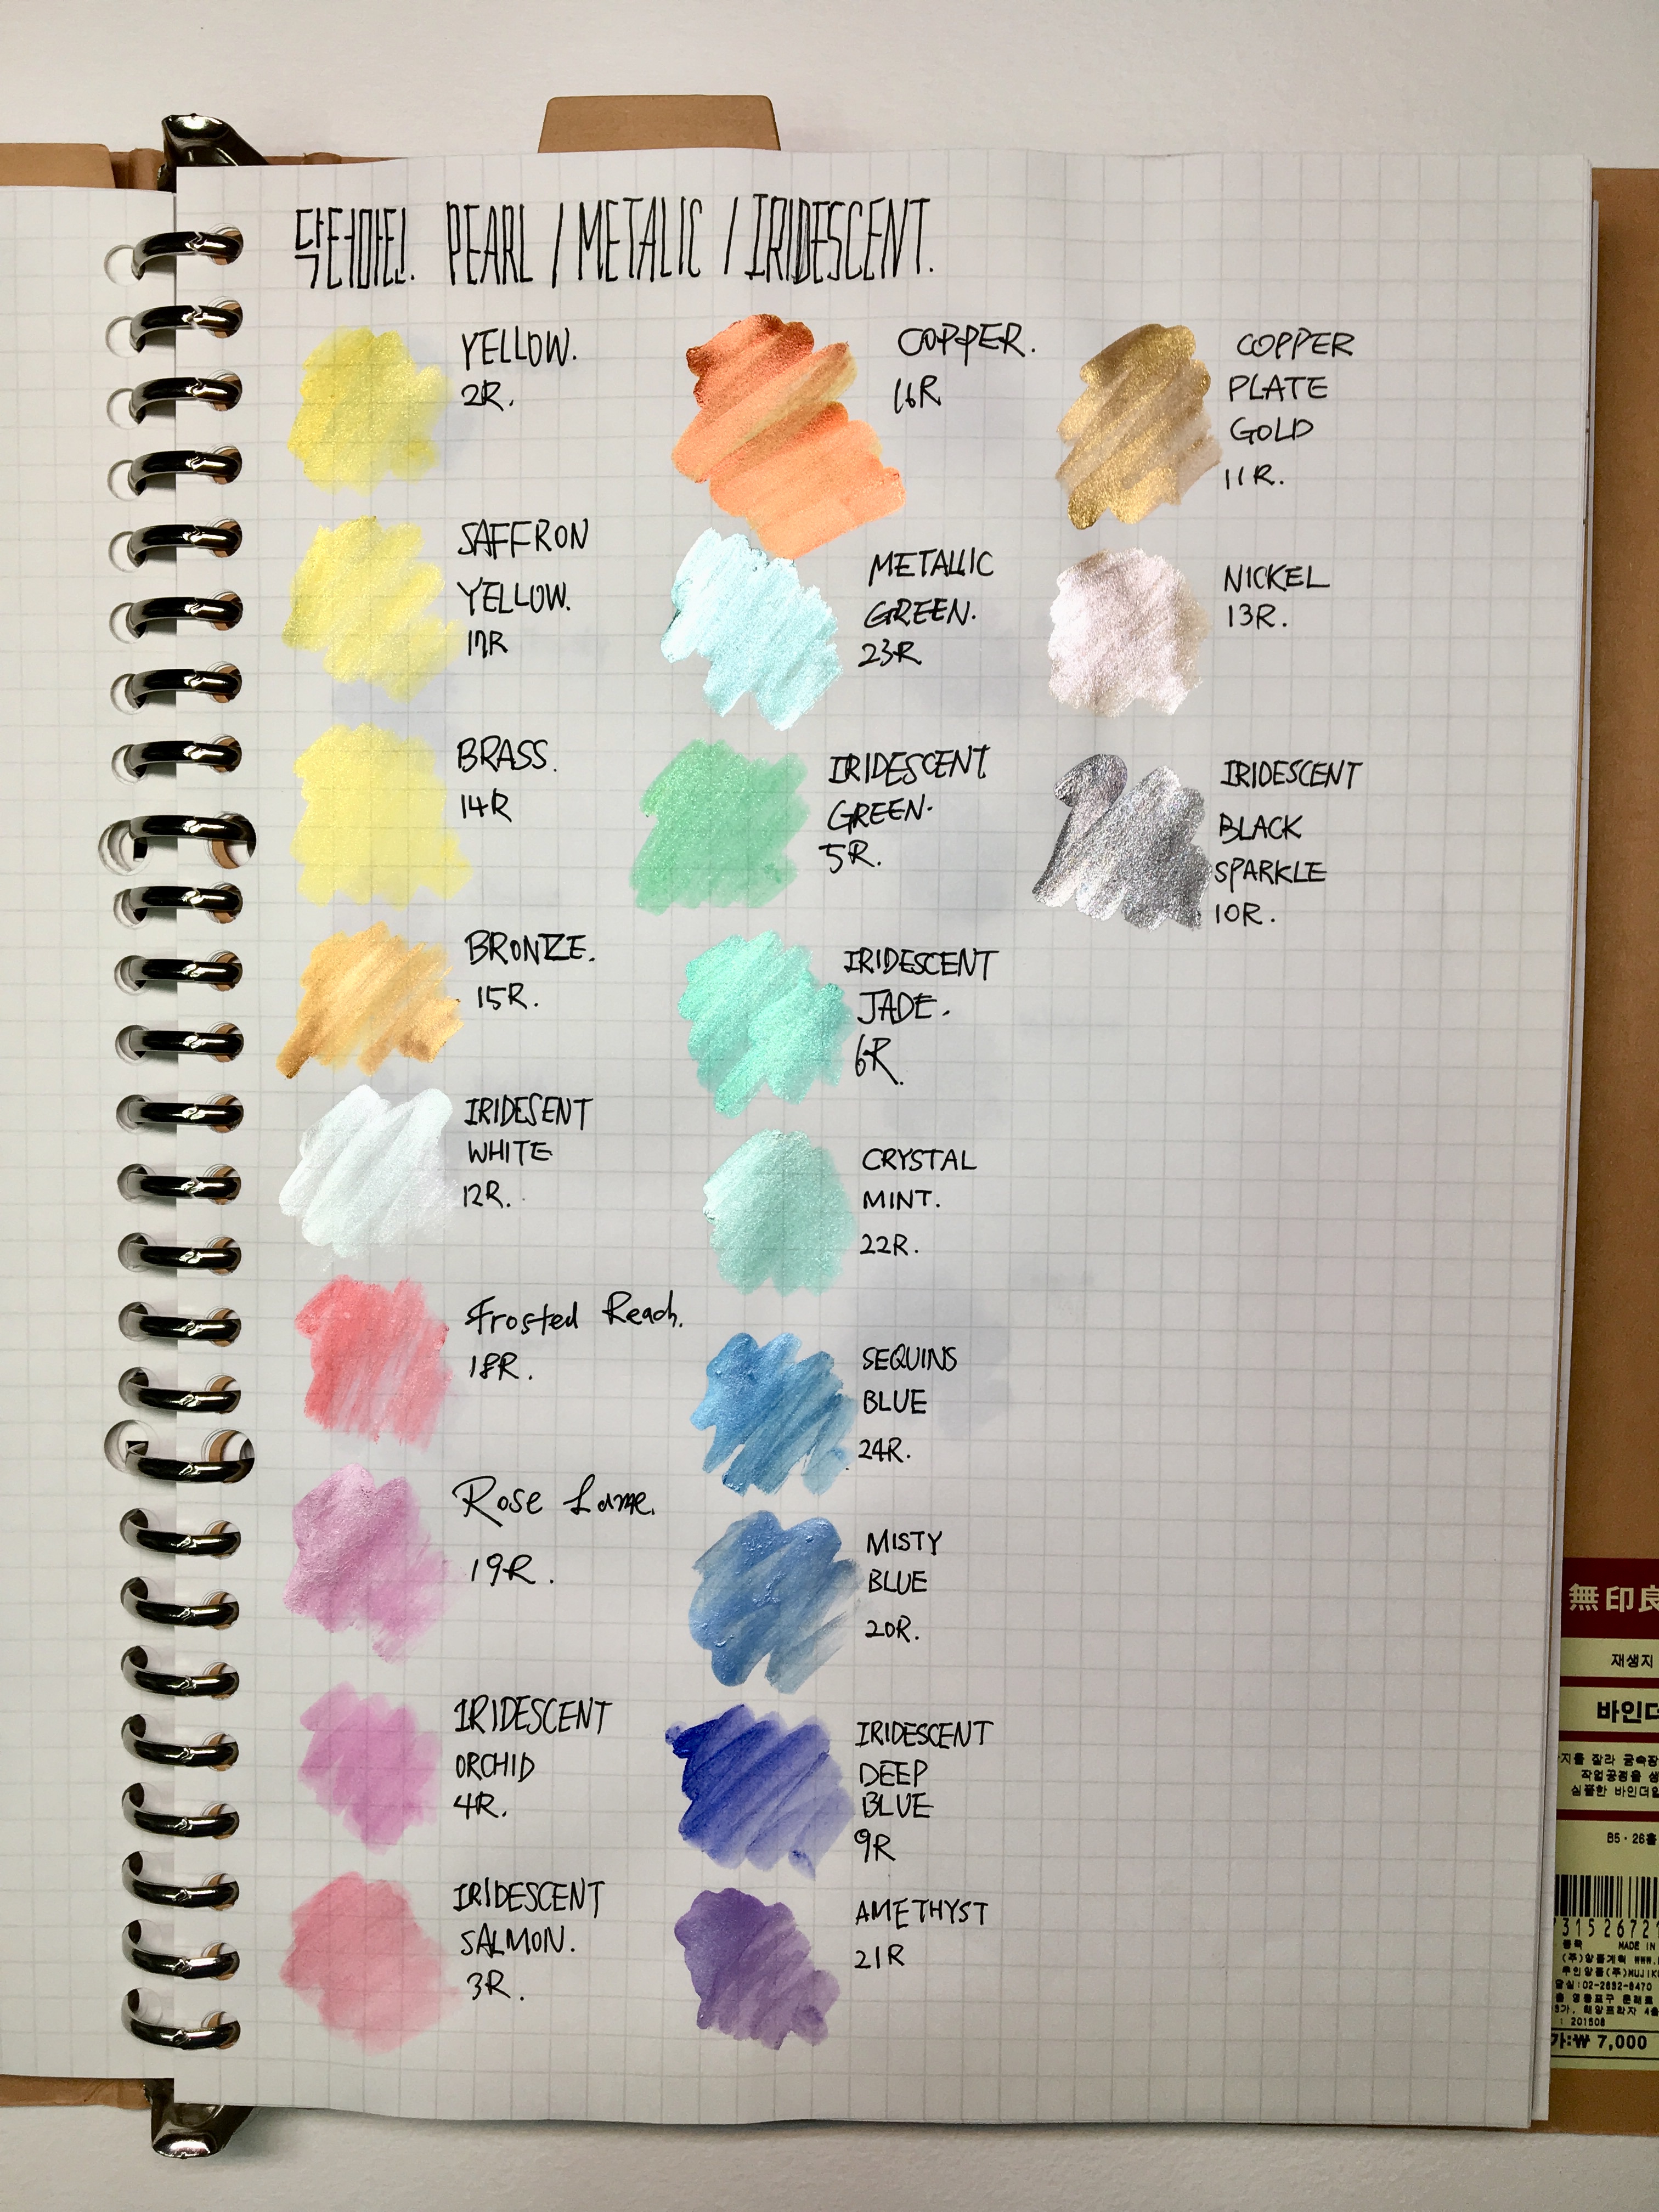 닥터마틴. PEARL / METALIC / IRIDESCENT.
YELLOW.
2R.
SAFFRON
YELLOW.
17R
BRASS.
14R
BRONZE.
15R.
IRIDESENT
WHITE
12R.
Frosted Reach.
18R.
Rose Lame.
19R.
IRIDESCENT
ORCHID
4R.
IRIDESCENT
SALMON.
3R.
COPPER.
16R
METALLIC
GREEN.
23R
IRIDESCENT
GREEN.
5R.
IRIDESCENT
JADE.
6R.
CRYSTAL
MINT.
22R.
SEQUINS
BLUE
24R.
MISTY
BLUE
20R.
IRIDESCENT
DEEP
BLUE
9R
AMETHYST
21R
COPPER
PLATE
GOLD
11R.
NICKEL
13R.
IRIDESCENT
BLACK
SPARKLE
10R.
無印良
재생지
바인더
B5·26홀
MADE IN
: 201508
가:₩ 7,000